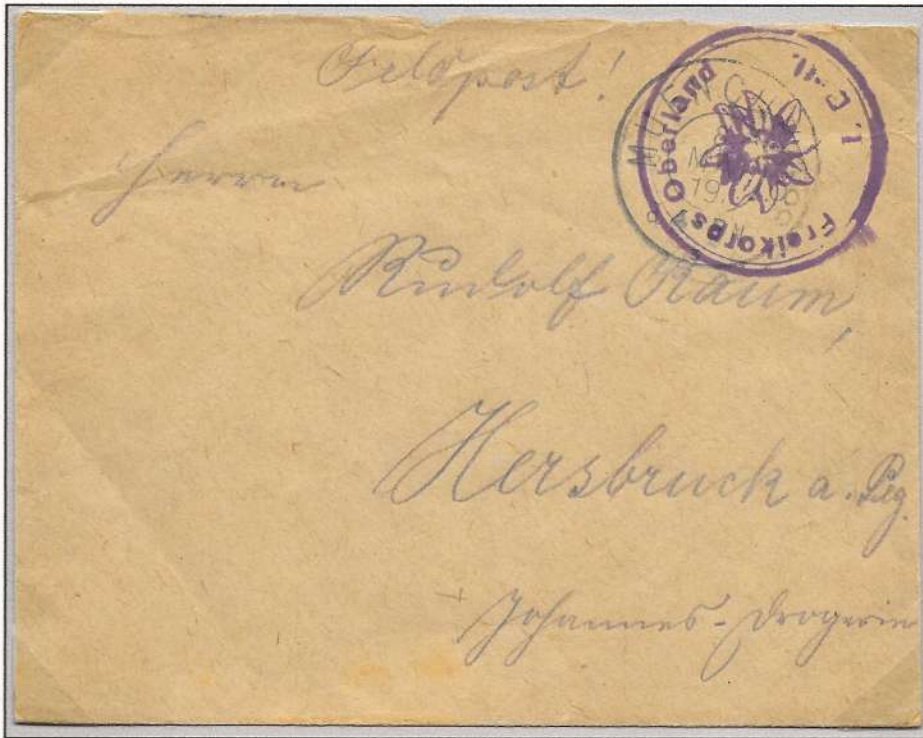 Feldpost!
Freikorps Oberland
Herrn
Rudolf Raum,
Hersbruck a. Peg.
Johannes-Drogerie